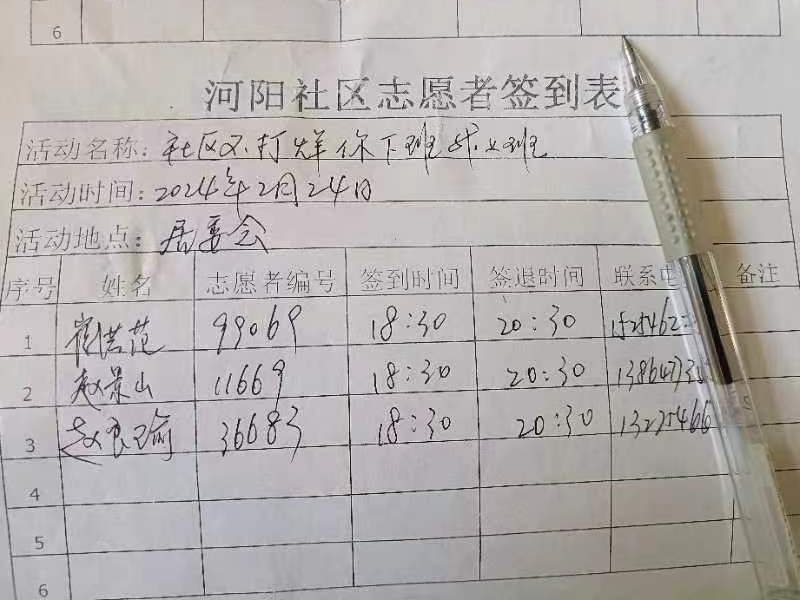 6
河阳社区志愿者签到表
活动名称：社区不打烊你下班我上班
活动时间：2024年2月24日
活动地点：居委会
序号 姓名 志愿者编号 签到时间 签退时间 联系电 备注
1 崔洪范 99069 18:30 20:30
2 赵景山 11669 18:30 20:30
3 赵良瑜 36683 18:30 20:30
4
5
6